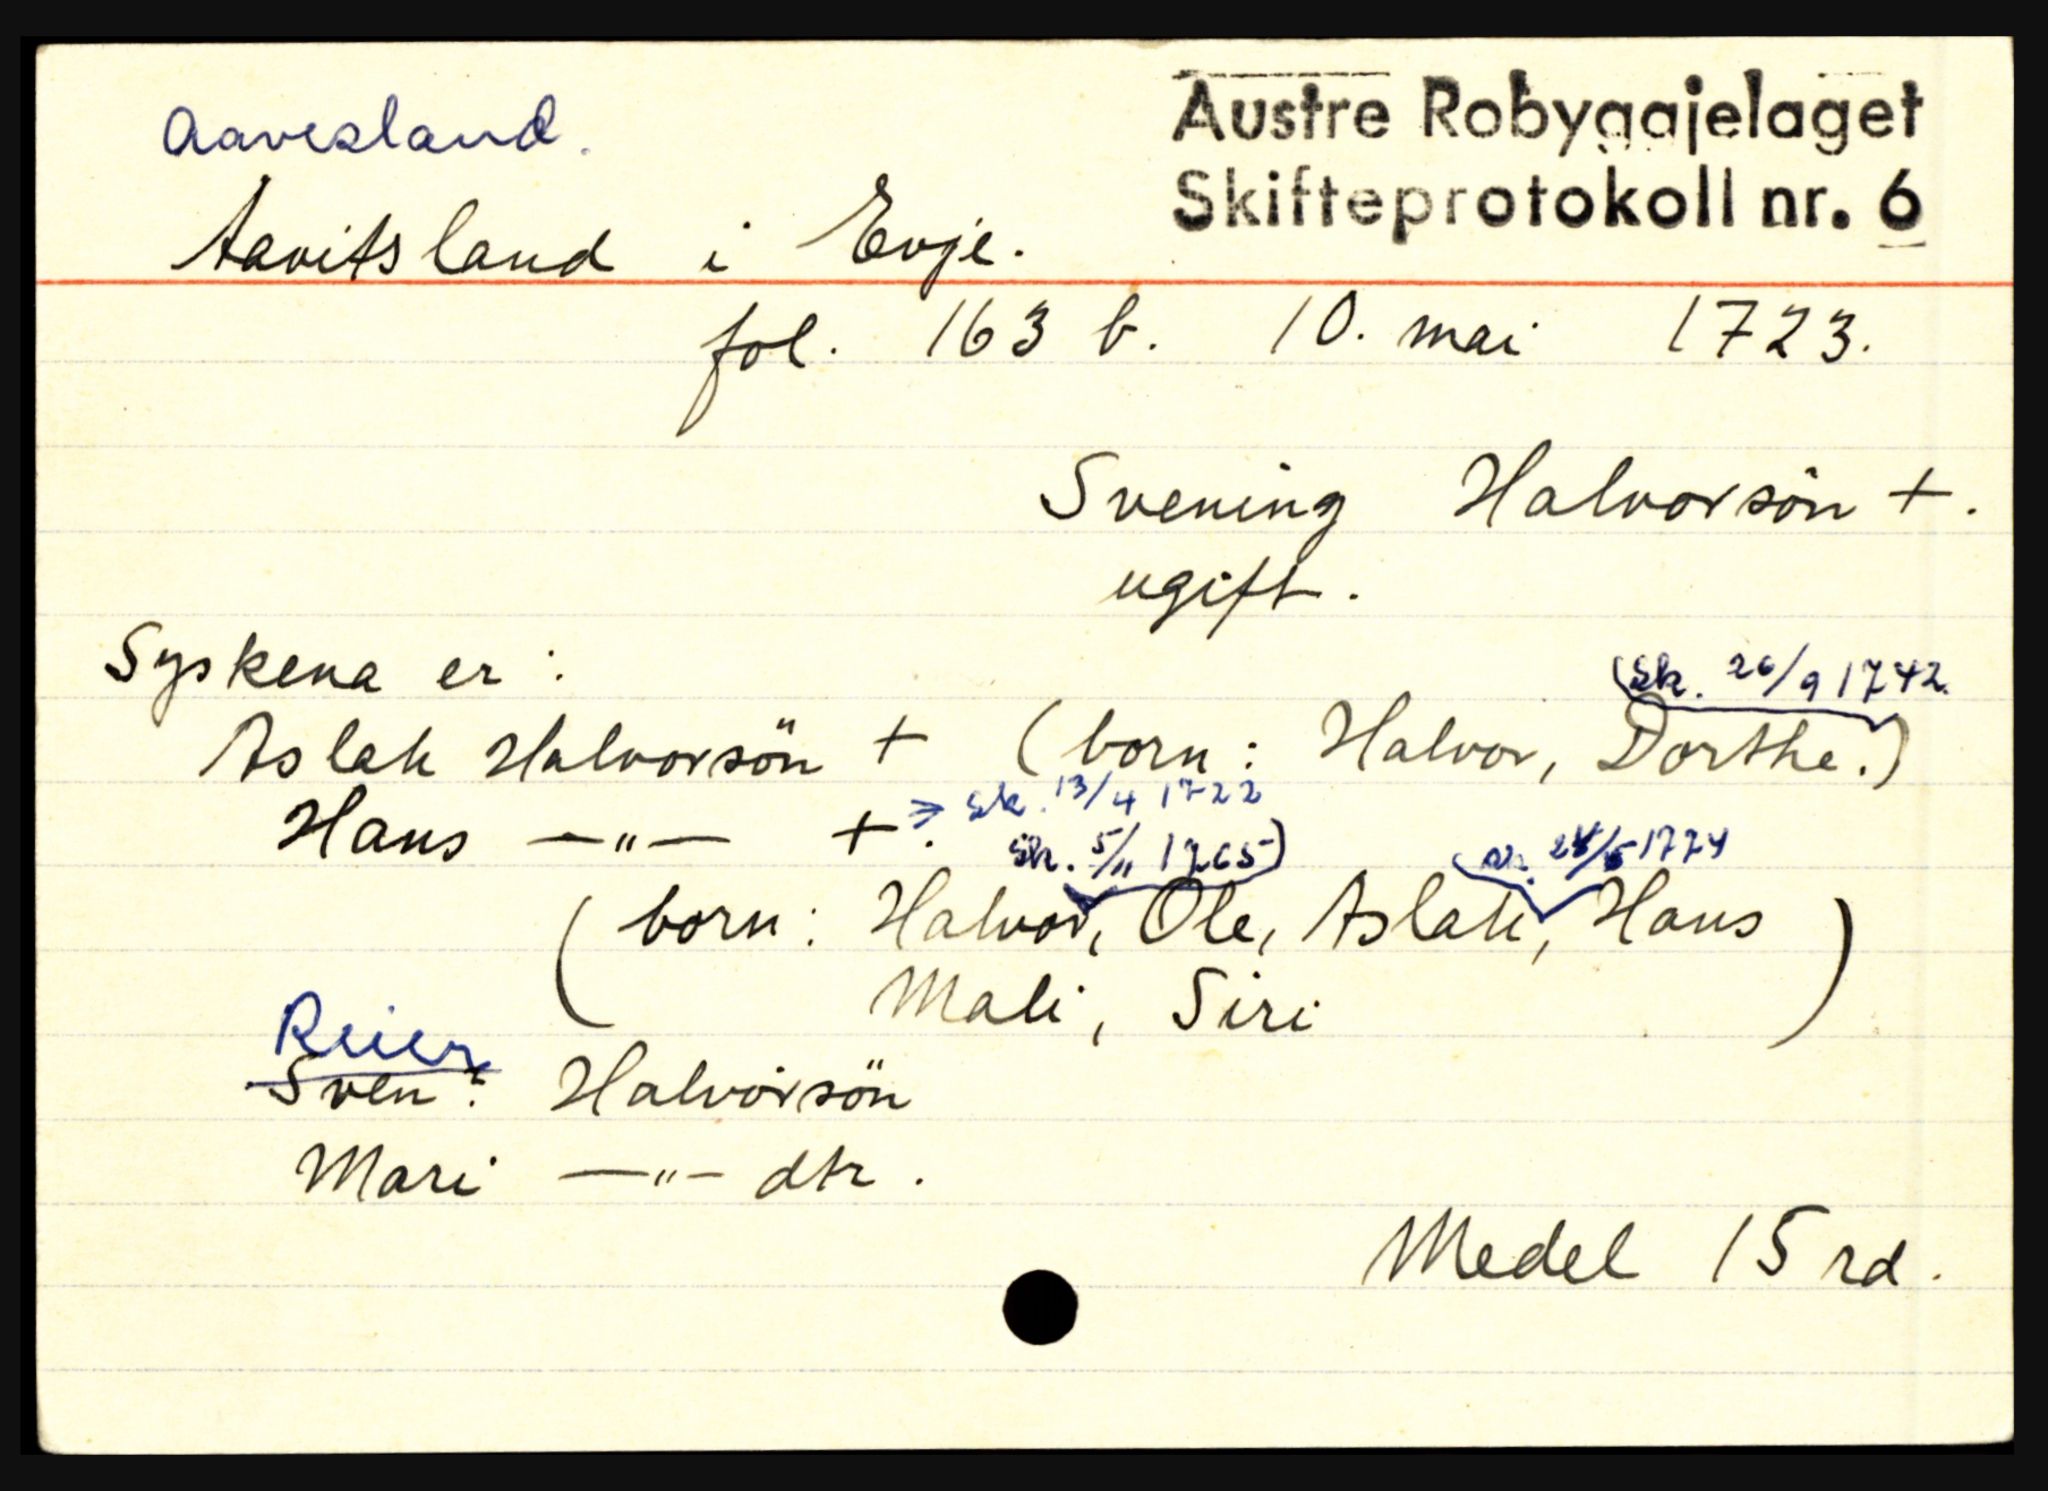 Austre Robyggjelaget
Aavesland.
Skifteprotokoll nr. 6
Aavitsland i Evje.
fol. 163 b. 10. mai 1723.
Svening Halvorsön +.
ugift.
Syskena er:
(Sk. 26/9 1742.
Aslak Halvorsön + (born: Halvor, Dorthe.)
Sk. 13/4 1722
Hans —"— +.
Sk. 5/11 1765)
(sk. 1774
(born: Halvor, Ole, Aslak, Hans
Mali, Siri)
Reier
Sven? Halvorsön
Mari —"— dtr.
Medel 15 rd.